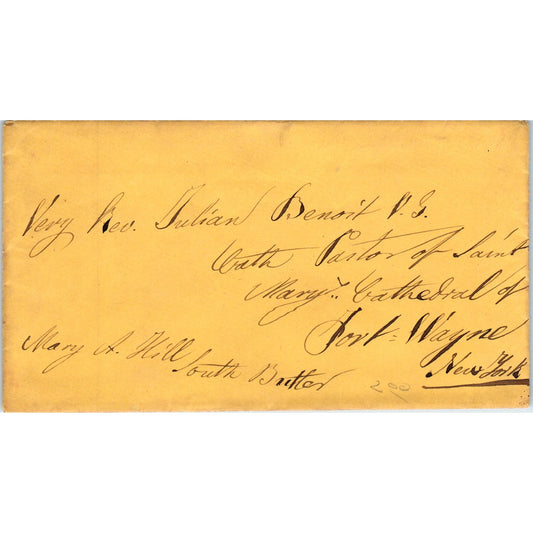 Very Rev. Julian Benoit V.G.
Cath Pastor of Saint
Mary's Cathedral of
Fort=Wayne
New York
Mary A. Hill
South Butler
2.00